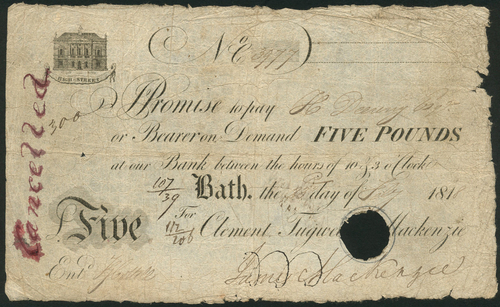 HIGH-STREET
No. E 3977
Cancelled
300
I Promise to pay H Denny Esqr.
or Bearer on Demand FIVE POUNDS
at our Bank between the hours of 10 & 3 o'Clock
107/39 Bath, the day of 181
For
£ Five 112/206 Clement, Tugwell Mackenzie
James Mackenzie
Entd.